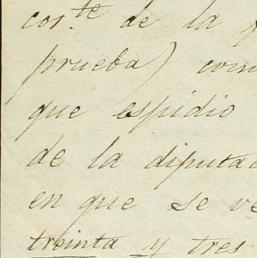 cor.te de la
prueba) com
que espidio
de la diputac
en que se ve
treinta y tres